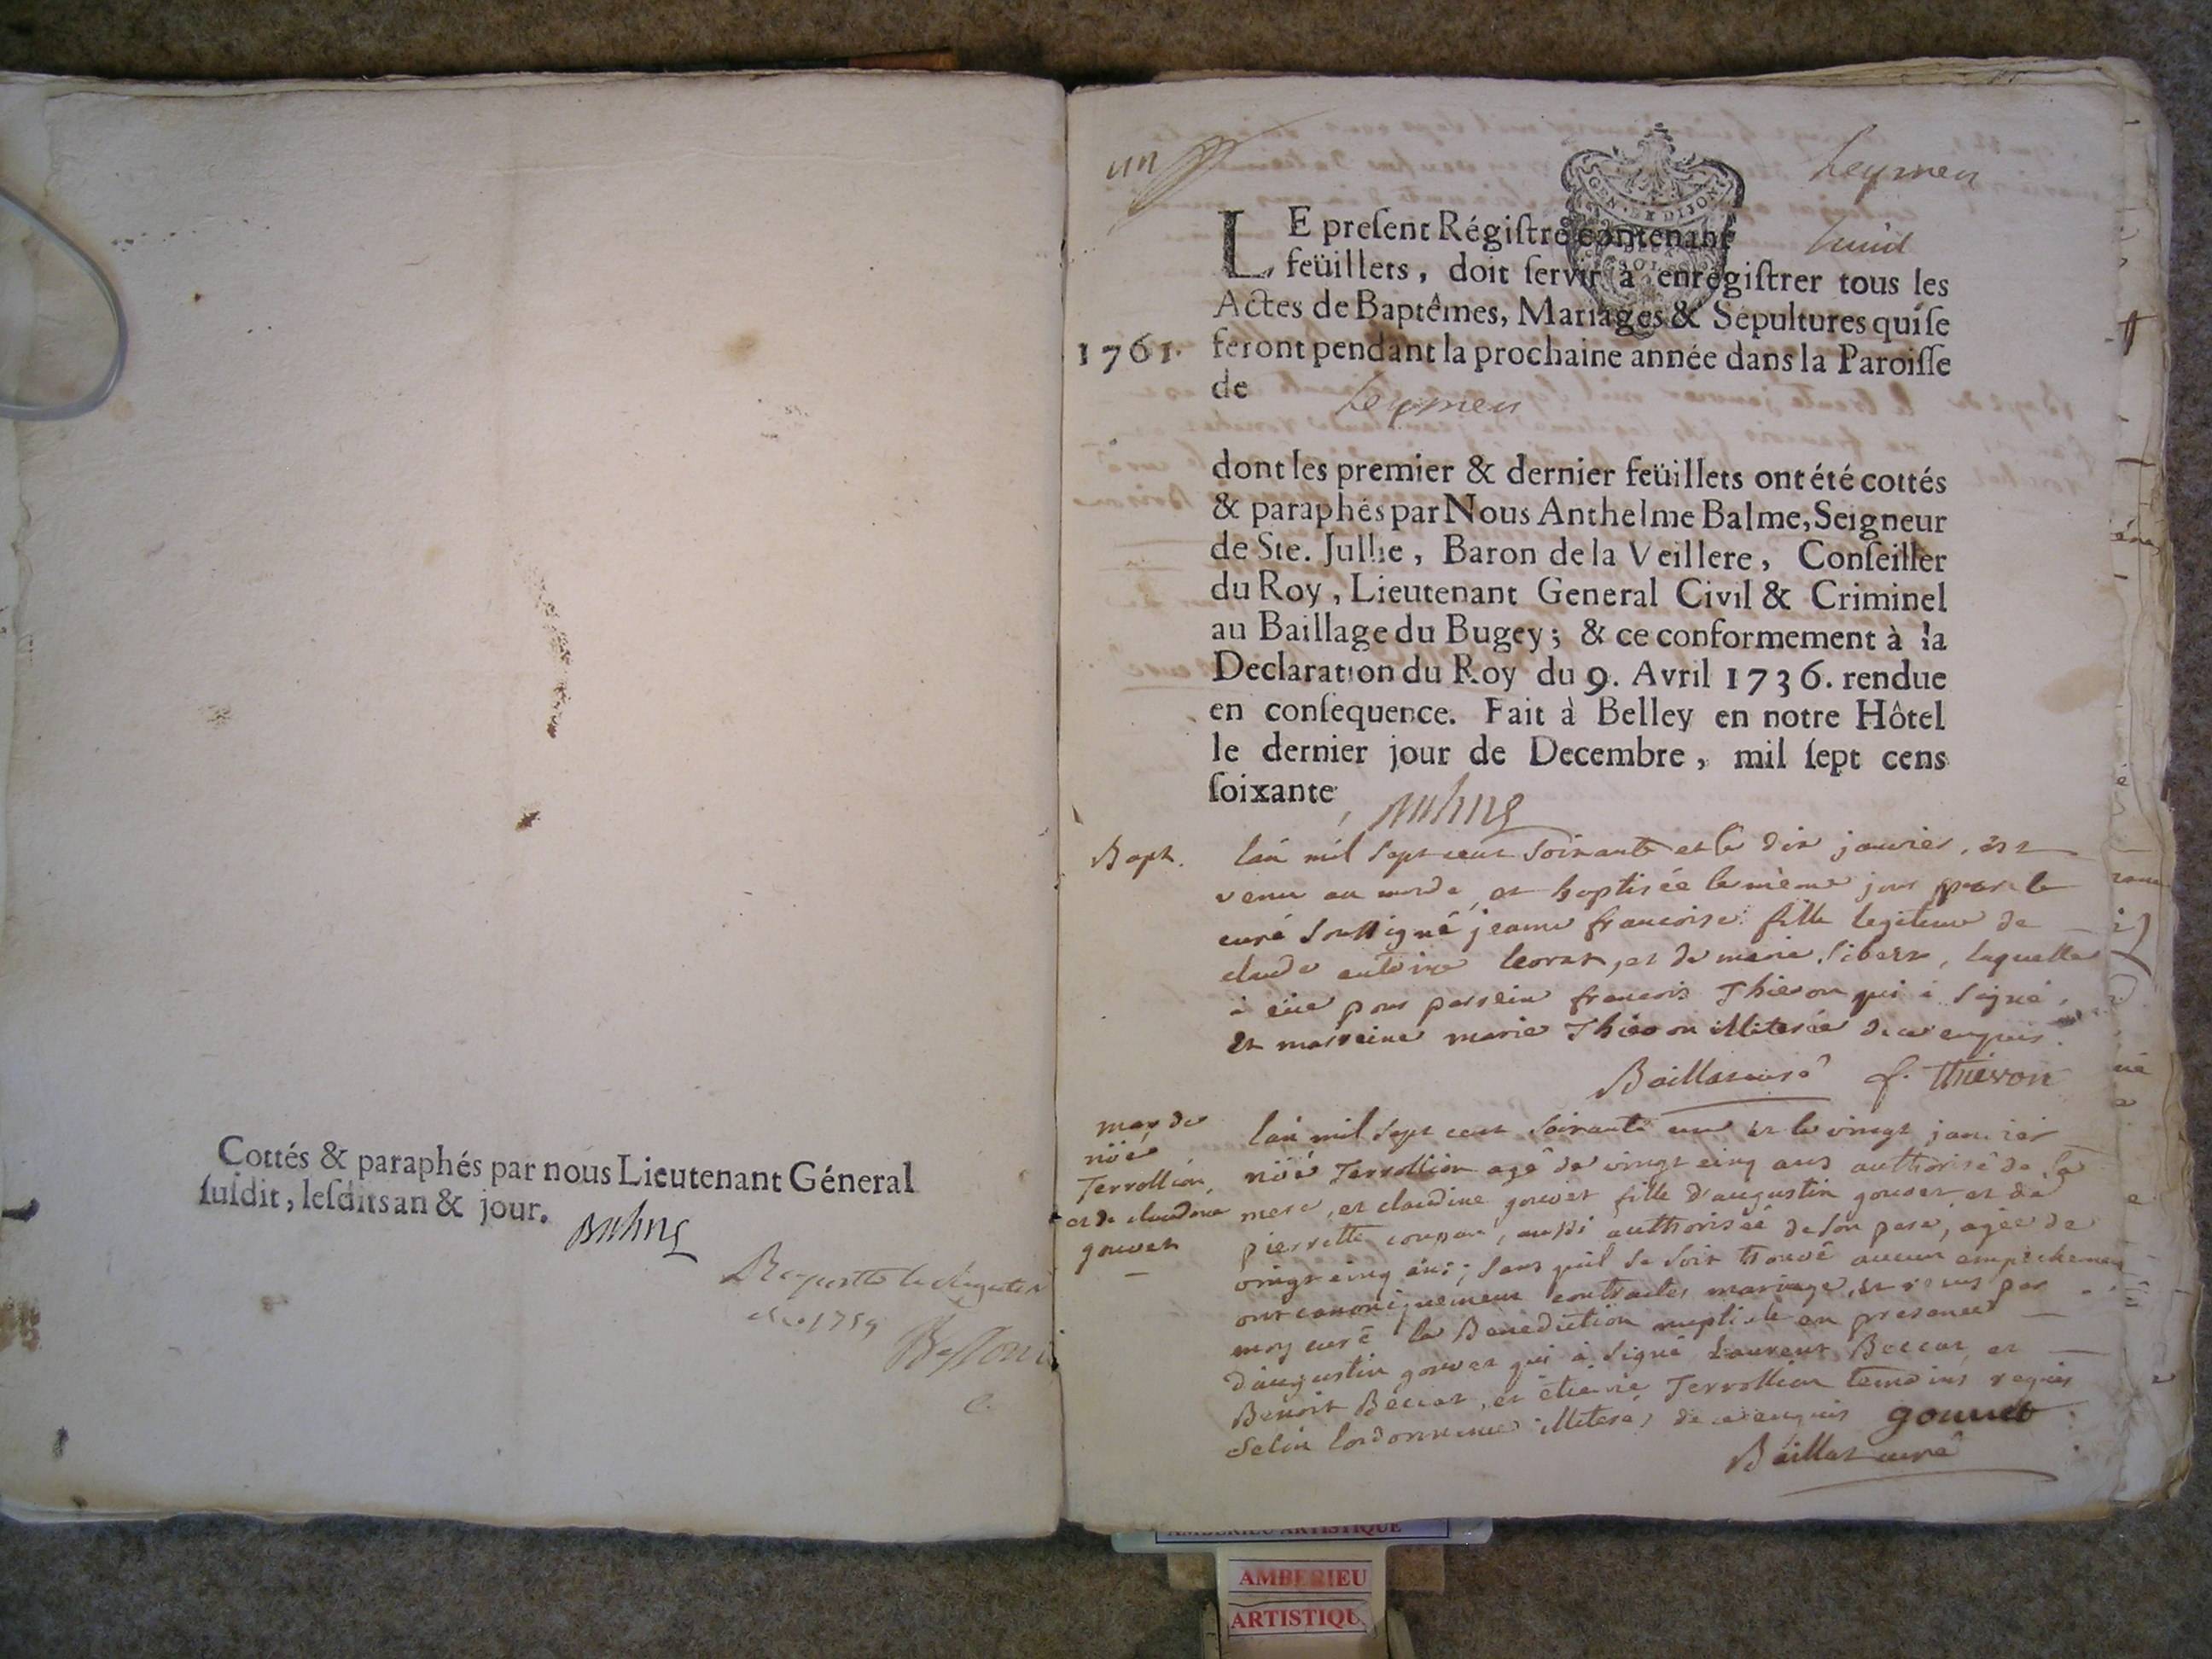 Cottés & paraphés par nous Lieutenant Géneral
suſdit, leſdits an & jour.
1759
un
Leymen
GEN. DE DIJON
LE preſent Régiſtre contenant huid
feüillets, doit ſervir à enregiſtrer tous les
Actes de Baptêmes, Mariages & Sépultures qui ſe
1761. feront pendant la prochaine année dans la Paroiſſe
de Leymen
dont les premier & dernier feüillets ont été cottés
& paraphés par Nous Anthelme Balme, Seigneur
de Ste. Jullie, Baron de la Veillere, Conſeiller
du Roy, Lieutenant General Civil & Criminel
au Baillage du Bugey; & ce conformement à la
Declaration du Roy du 9. Avril 1736. rendue
en conſequence. Fait à Belley en notre Hôtel
le dernier jour de Decembre, mil ſept cens
ſoixante
Bapt.
lan mil sept cent soixante et le dix janvier, est
venu au monde, et baptisée le même jour par le
curé soussigné jeanne francoise fille legitime de
claude antoine leorat, et de marie sibert, laquelle
à eüe pour parrein francois Thievon qui à signé,
et marreine marie Thievon illiterée de ce enquis.
Baillat curé f. Thievon
mar. de
nöé
Terrollion,
et de claudine
gouvet
lan mil sept cent soixante un et le vingt janvier
nöé Terrollion agé de vingt cinq ans authorisé de sa
mere, et claudine gouvet fille d'augustin gouvet et de
pierrette, aussi authorisée de son pere, agée de
vingt cinq ans; sans quil se soit trouvé aucun empechement
ont canoniquement contracter mariage, et reçus par
moy curé la Benediction nuptiale en presence
d'augustin gouvet qui à signé Laurent Beccat et
Benoit Beccat, et étienne Terrollion temoins requis
selon lordonnance illiterés de ce enquis gouvet
Baillat curé
AMBERIEU ARTISTIQUE
AMBERIEU
ARTISTIQU